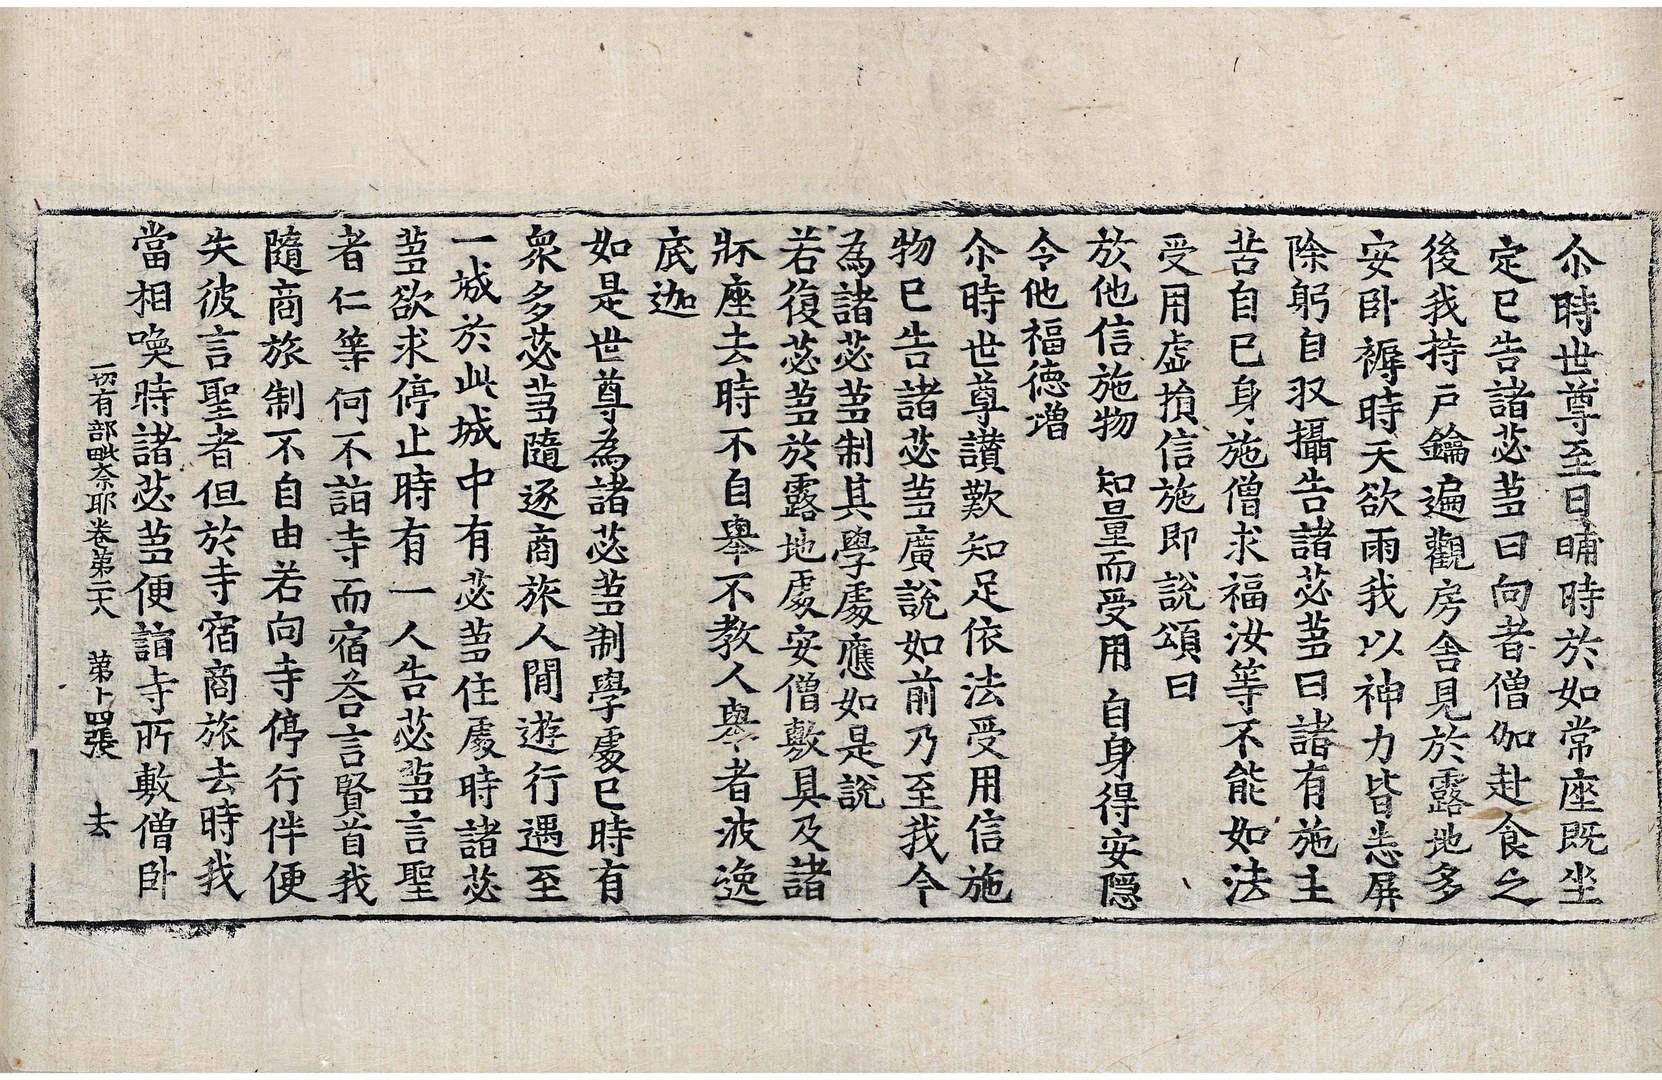 尒時世尊至日晡時於如常座既坐
定已告諸苾蒭曰向者僧伽赴食之
後我持戶鑰遍觀房舍見於露地多
安卧褥時天欲雨我以神力皆悉屏
除躬自収攝告諸苾蒭曰諸有施主
苦自已身施僧求福汝等不能如法
受用虛損信施即說頌曰
於他信施物　知量而受用　自身得安隱
令他福德增
尒時世尊讃歎知足依法受用信施
物已告諸苾蒭廣說如前乃至我今
為諸苾蒭制其學處應如是說
若復苾蒭於露地處安僧敷具及諸
牀座去時不自舉不教人舉者波逸
底迦
如是世尊為諸苾蒭制學處已時有
衆多苾蒭隨逐商旅人閒遊行遇至
一城於此城中有苾蒭住處時諸苾
蒭欲求停止時有一人告苾蒭言聖
者仁等何不詣寺而宿荅言賢首我
隨商旅制不自由若向寺停行伴便
失彼言聖者但於寺宿商旅去時我
當相喚時諸苾蒭便詣寺所敷僧卧
一切有部毗奈耶卷第二十八　第十四張　去